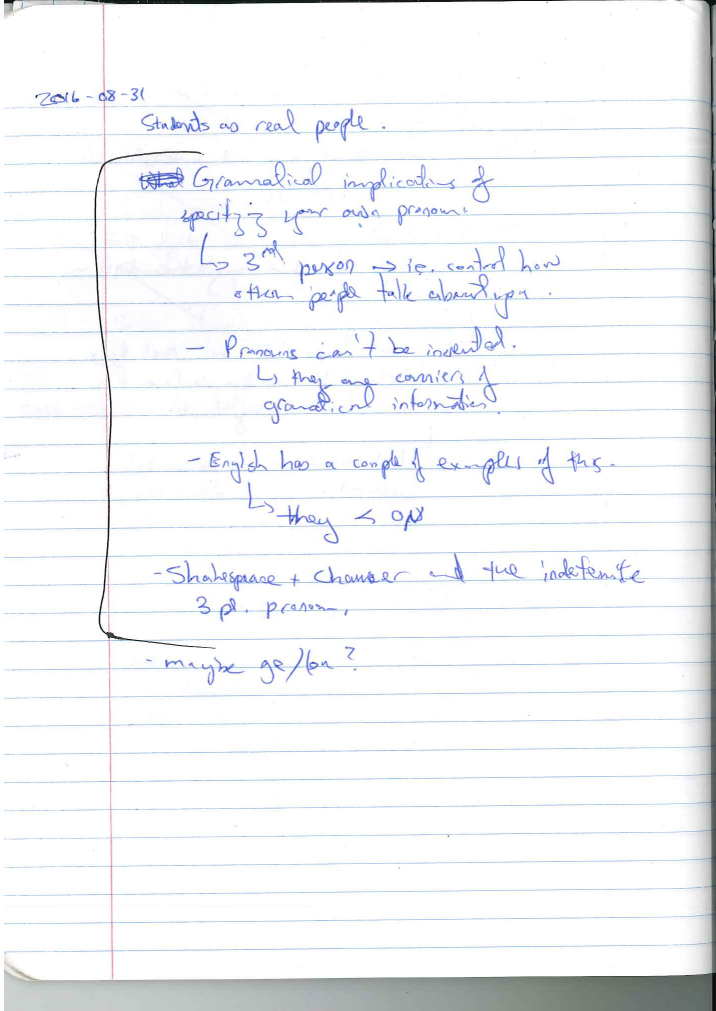 2016-08-31
Students as real people.
Gramatical implications of
specifying your own pronoun.
↳ 3rd person → ie. control how
other people talk about you.
- Pronouns can't be invented.
↳ they are carriers of
gramatical information.
- English has a couple of examples of this.
↳ they < ON
- Shakespeare + Chaucer and the indefenite
3 pl. pronoun,
- maybe ge/